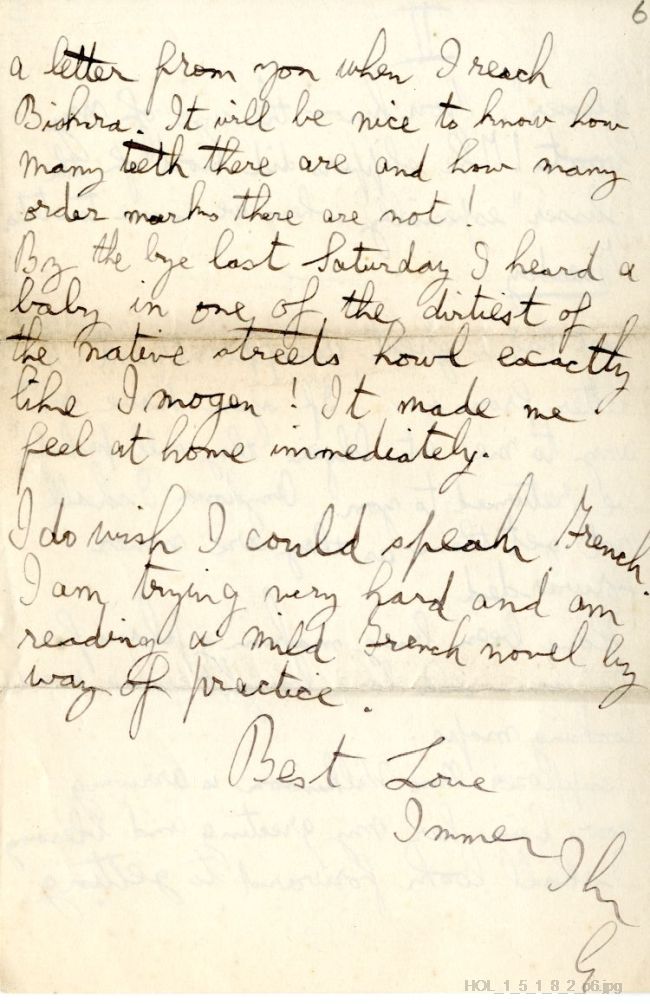 6
a letter from you when I reach
Biskra. It will be nice to know how
many teeth there are and how many
order marks there are not!
By the bye last Saturday I heard a
baby in one of the dirtiest of
the native streets howl exactly
like Imogen! It made me
feel at home immediately.
I do wish I could speak French.
I am trying very hard and am
reading a mild French novel by
way of practice.
Best Love
Immer Ihr
G
HOL_1_5_1_8_2_p6.jpg